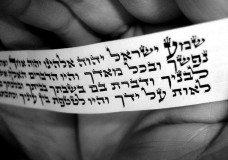 שמע ישראל יהוה אלהינו יהוה אחד
נפשך ובכל מאדך והיו הדברים האלה
לבניך ודברת בם בשבתך
לאות על ידך והיו לטטפת בין עיניך